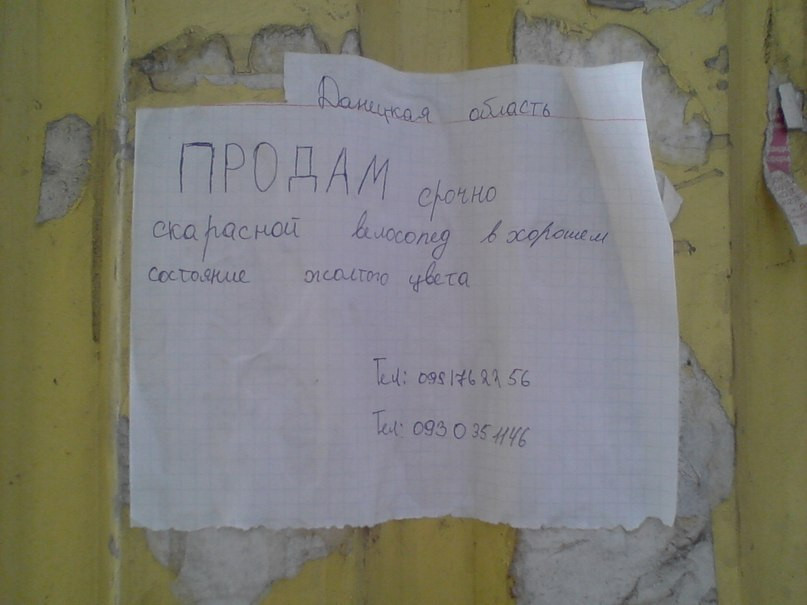 Данецкая область
ПРОДАМ срочно
скарасной велосопед в хорошем
состояние жолтого цвета
Тел: 0991762256
Тел: 093 0 35 1146